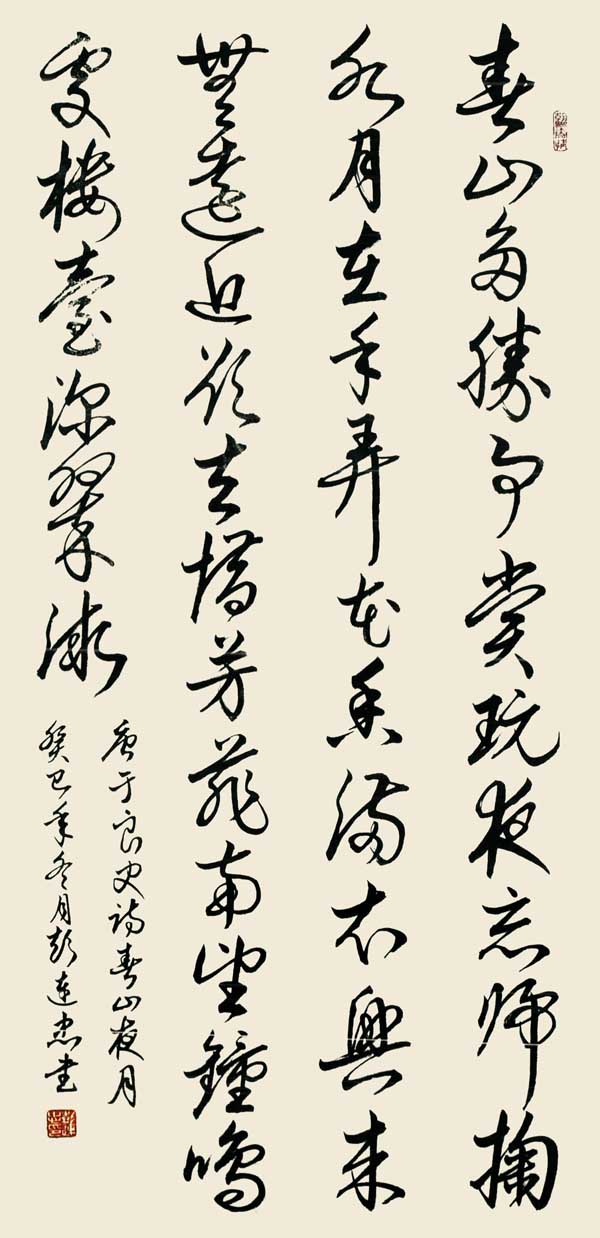 春山多勝事賞玩夜忘歸掬
水月在手弄花香滿衣興來
無遠近欲去惜芳菲南望鐘鳴
處樓臺深翠微
唐于良史詩春山夜月
癸巳年冬月彭連忠書